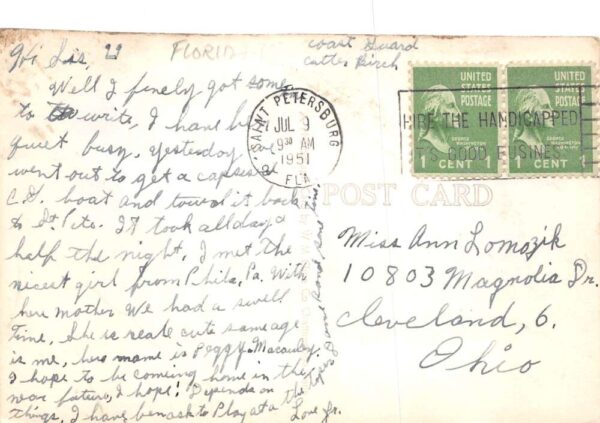 Hi Sis,
FLORID
Coast Guard
Cutter Birch
Well I finely got some
to write, I have be
quiet busy, yesterday we
went out to get a capsise
C.G. boat and towed it back
to St. Pete. It took all day &
half the night. I met the
nicest girl from Phila, Pa. With
here mother We had a swell
time. She is reale cute same age
is me, here name is Peggy Macauley.
I hope to be comeing home in the
near future, I hope! Depends on
things, I have ben ask to Play at a
Love Jr.
SAINT PETERSBURG
JUL 9
9 30 AM
1951
FLA.
HIRE THE HANDICAPPED
GOOD BUSINESS
UNITED
STATES
POSTAGE
GEORGE
WASHINGTON
1 CENT 1
UNITED
STATES
POSTAGE
GEORGE
WASHINGTON
1 CENT
POST CARD
Miss Ann Lomozik
10803 Magnolia Dr.
Cleveland, 6.
Ohio